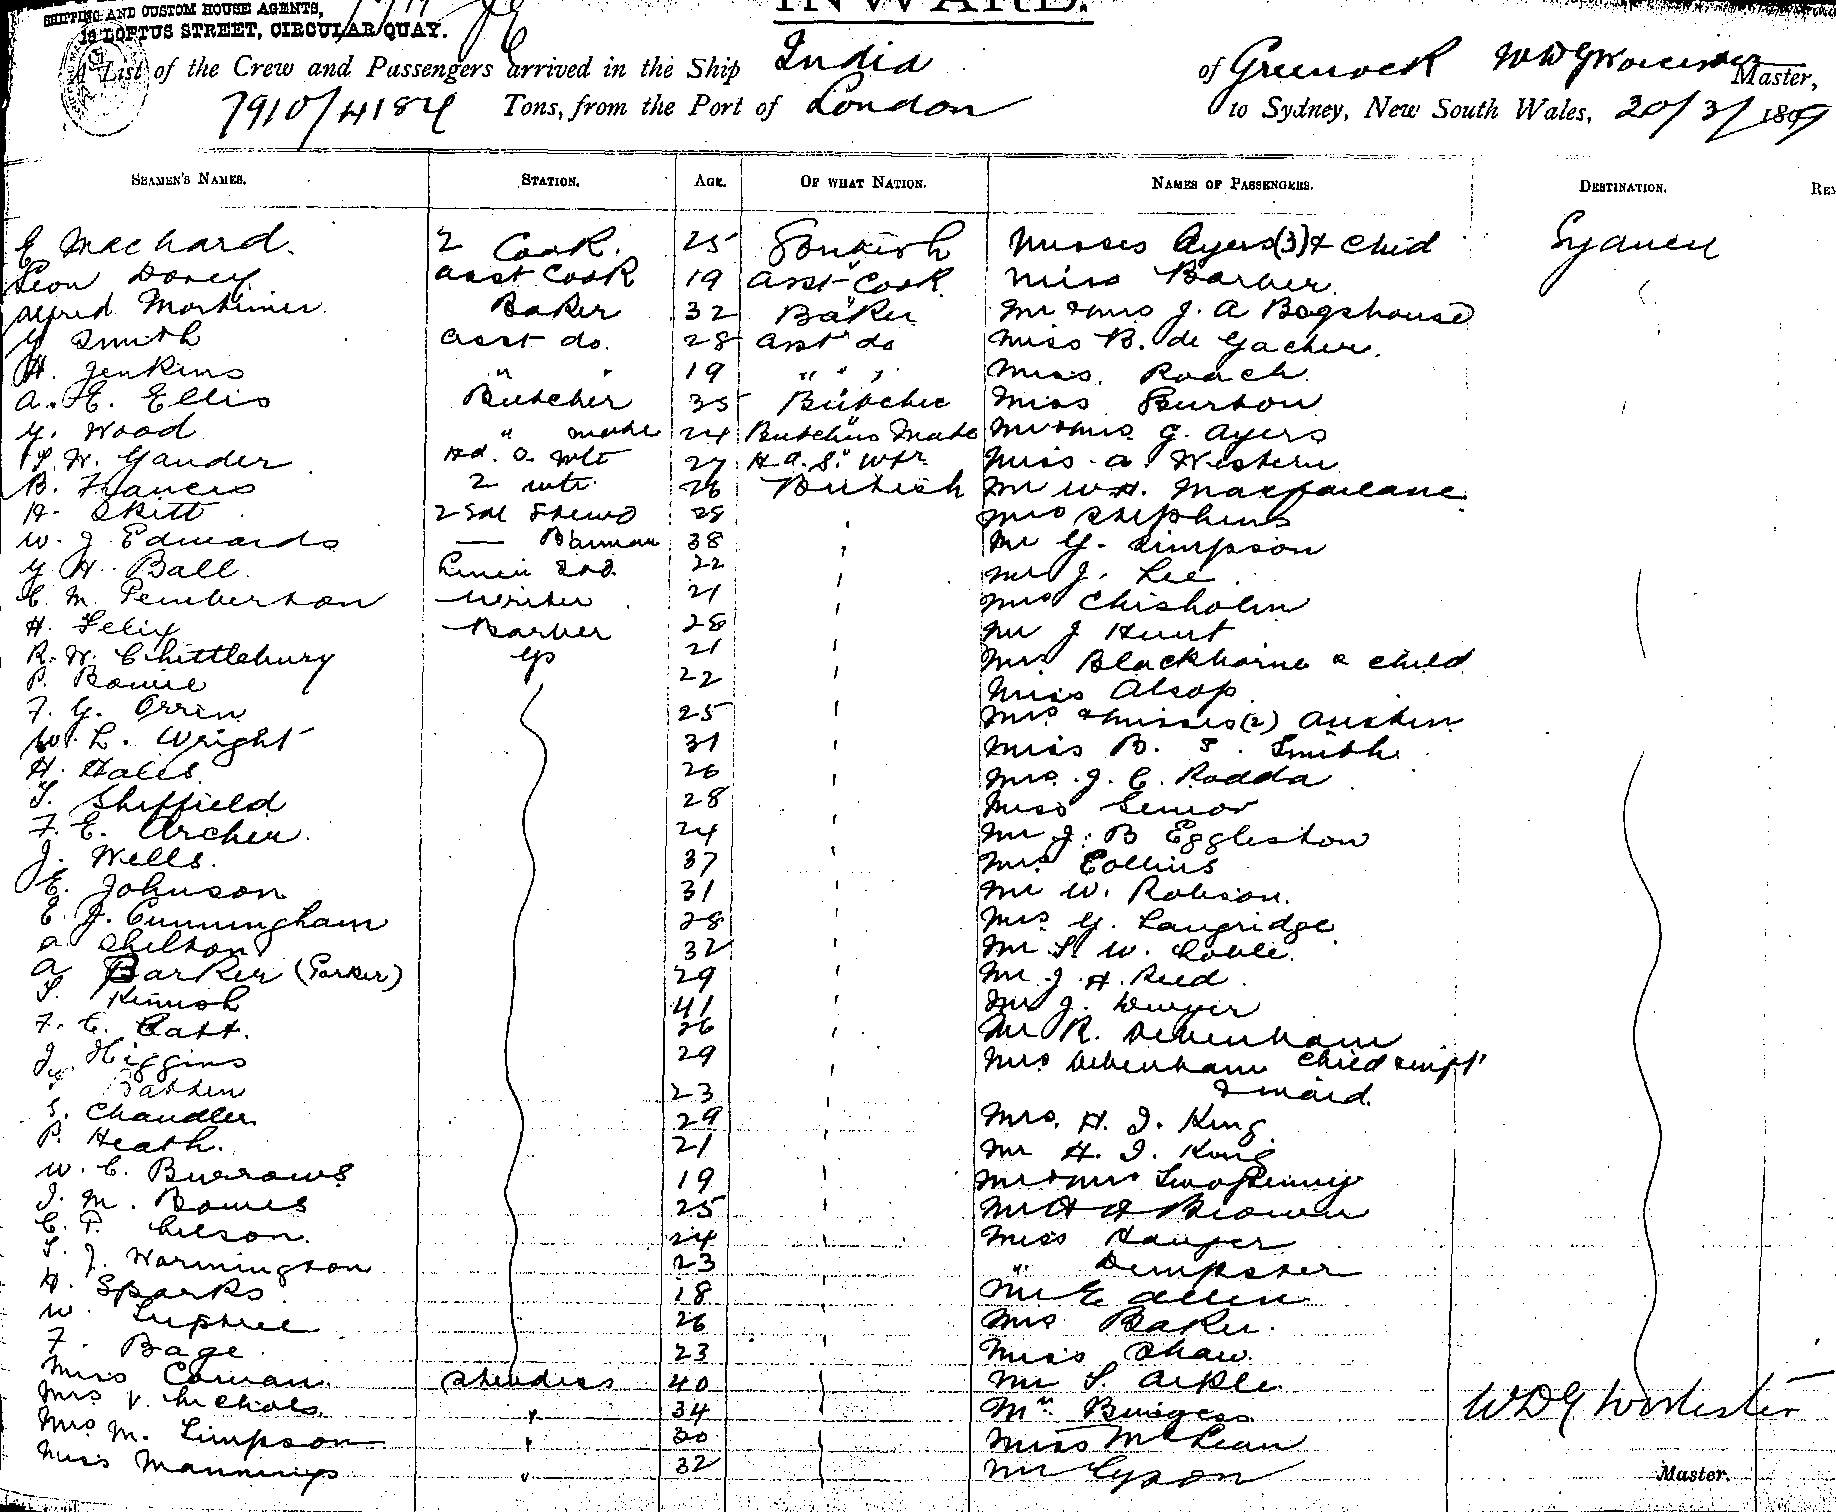 INWARD.
SHIPPING AND CUSTOM HOUSE AGENTS,
LOFTUS STREET, CIRCULAR QUAY.
A List of the Crew and Passengers arrived in the Ship India of Greenock Master,
7910/4184 Tons, from the Port of London to Sydney, New South Wales, 20/3/1897
SEAMEN'S NAMES. STATION. AGE. OF WHAT NATION. NAMES OF PASSENGERS. DESTINATION.
E Machard. 2 Cook. 25 Misses Ayers (3) & Child Sydney
Leon Dorey asst Cook 19 asst Cook Miss Barber.
Alfred Mortimer Baker 32 Baker Mr & Mrs J. A Bagshouse
G Smith asst do. 28 asst do Miss B. de Gacher.
H. Jenkins " " 19 " " " Miss. Roach.
A. E. Ellis Butcher 35 Butcher Miss Burton
G. Wood " mate 24 Butchers Mate Mr & Mrs G. Ayers
W. Gander 27 Miss A. Western
B. Francis 2 wtr. 26 British Mr W. H. Macfarlane
H. Skitt 2 Sal Stewd 28 Mrs Stephens
W. J Edwards — Barman 38 Mr G. Simpson
G H. Ball. 22 Mr J. Lee
C. M. Pemberton Writer 21 Mrs Chisholm
H. Felix Barber 28 Mr J Hunt
R. W. Chittlebury GS 21 Mrs Blackhorne & child
P. Bowie 22 Miss Alsop
F. G. Orrin 25 Mrs & Misses (2) Austin
W. L. Wright 31 Miss B. S. Smith
H. Hales. 26 Mrs. J. C. Rodda
T. Sheffield 28 Miss Senior
F. E. Archer. 24 Mr J. B Eggleston
J. Wells. 37 Mrs Collins
E. Johnson 31 Mr W. Robson.
E. J. Cunningham 28 Mrs G. Langridge
A Shelton 32 Mr S. W.
A Barker (Parker) 29 Mr J. H. Reed
41 Mr J. Dwyer
F. C. Catt. 26 Mr R. Debenham
J. Higgins 29 Mrs Debenham Child
G. Batten 23 & maid.
S. Chandler 29 Mrs. H. J. King
P. Heath. 21 Mr H. J. King
W. C. Burrows 19 Mr & Mrs Twopenny
J. M. Bowes 25 Mr H Brown
C. P. 24 Miss Harper
S. J. Warmington 23 " Dempster
H. Sparks 18 Mr E Allen
W. 26 Mrs Baker.
F. Bage 23 Miss Shaw.
Miss Cowan. Stewdess 40 Mr S. Arkle
Mrs V. Nichols " 34 Mr Burgess
Mrs M. Simpson " 30 Miss McLean
Miss Mannings " 32 Mr Tyson
Master.